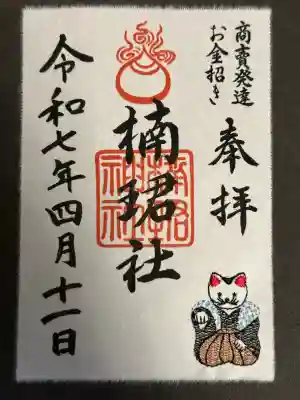 商賣発達
お金招き
奉拝
楠珺社
楠珺社神社
令和七年四月十一日